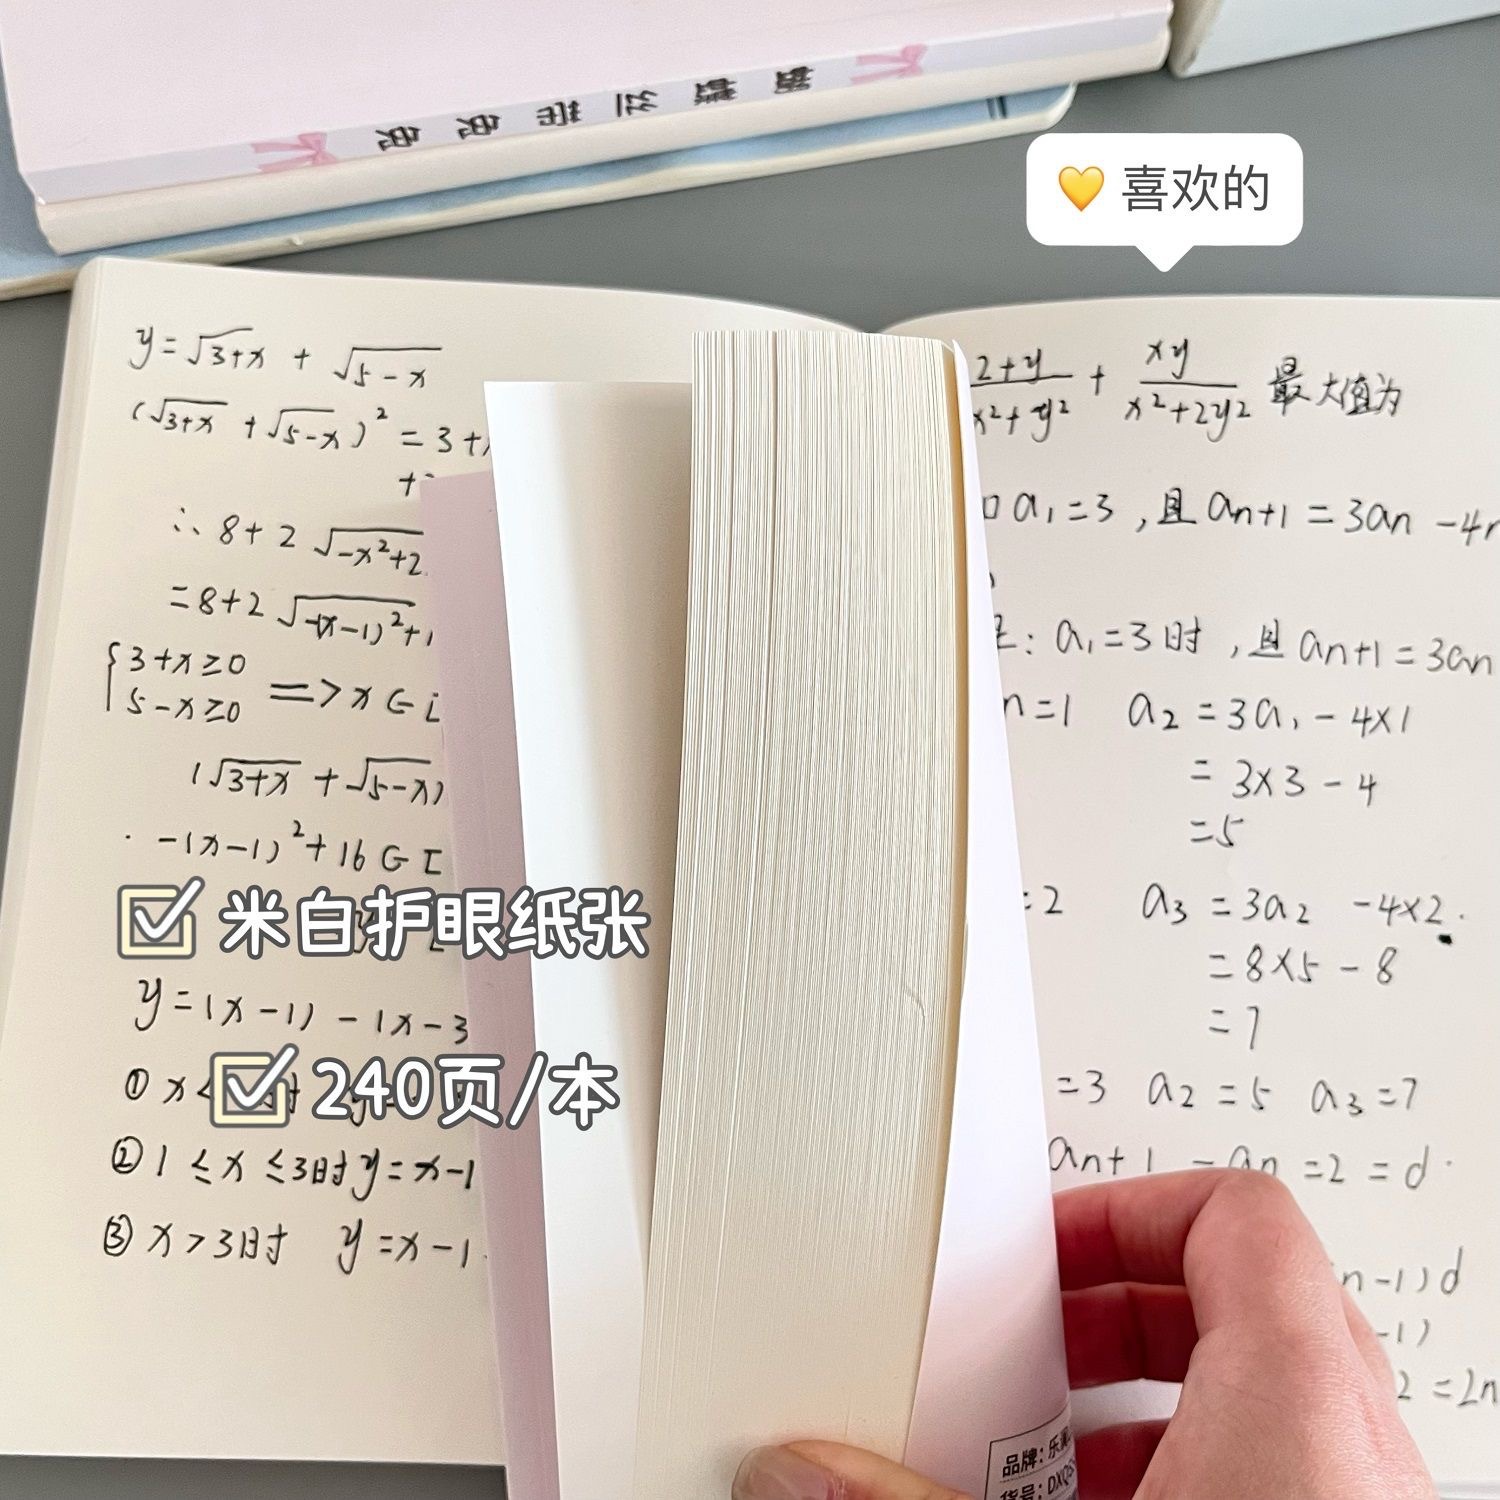 喜欢的
y=√3+x + √5-x
(√3+x +√5-x)² = 3+
∴ 8+2 √-x²+2
=8+2 √-(x-1)²+1
{3+x≥0
5-x≥0 => x∈[
(√3+x +√5-x)
-(x-1)²+16∈[
米白护眼纸张
y=|x-1| - |x-3
① x<
240页/本
② 1≤x≤3时y=x-1
③ x>3时 y=x-1
2+y/x²+y² + xy/x²+2y² 最大值为
a₁=3,且an+1=3an-4n
: a₁=3时,且an+1=3an
n=1 a₂=3a₁-4×1
=3×3-4
=5
=2 a₃=3a₂-4×2
=8×5-8
=7
=3 a₂=5 a₃=7
an+1-an=2=d
n-1)d
-1)
2=2n
品牌:乐
货号:DXQ